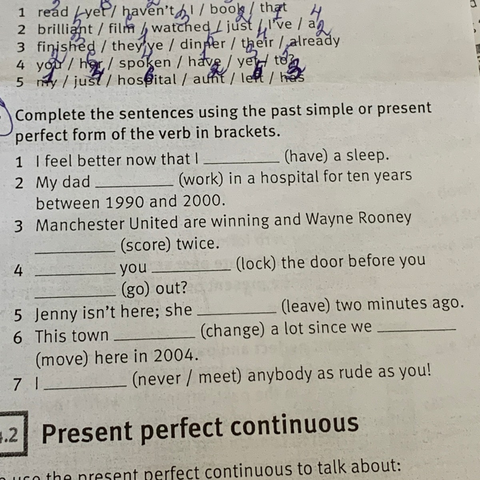 1 read / yet / haven't / I / book / that
2 brilliant / film / watched / just / I've / a
3 finished / they've / dinner / their / already
4 you / her / spoken / have / yet / to?
5 my / just / hospital / aunt / left / has
Complete the sentences using the past simple or present
perfect form of the verb in brackets.
1 I feel better now that I __________ (have) a sleep.
2 My dad __________ (work) in a hospital for ten years
between 1990 and 2000.
3 Manchester United are winning and Wayne Rooney
__________ (score) twice.
4 __________ you __________ (lock) the door before you
__________ (go) out?
5 Jenny isn't here; she __________ (leave) two minutes ago.
6 This town __________ (change) a lot since we __________
(move) here in 2004.
7 I __________ (never / meet) anybody as rude as you!
.2 Present perfect continuous
use the present perfect continuous to talk about: